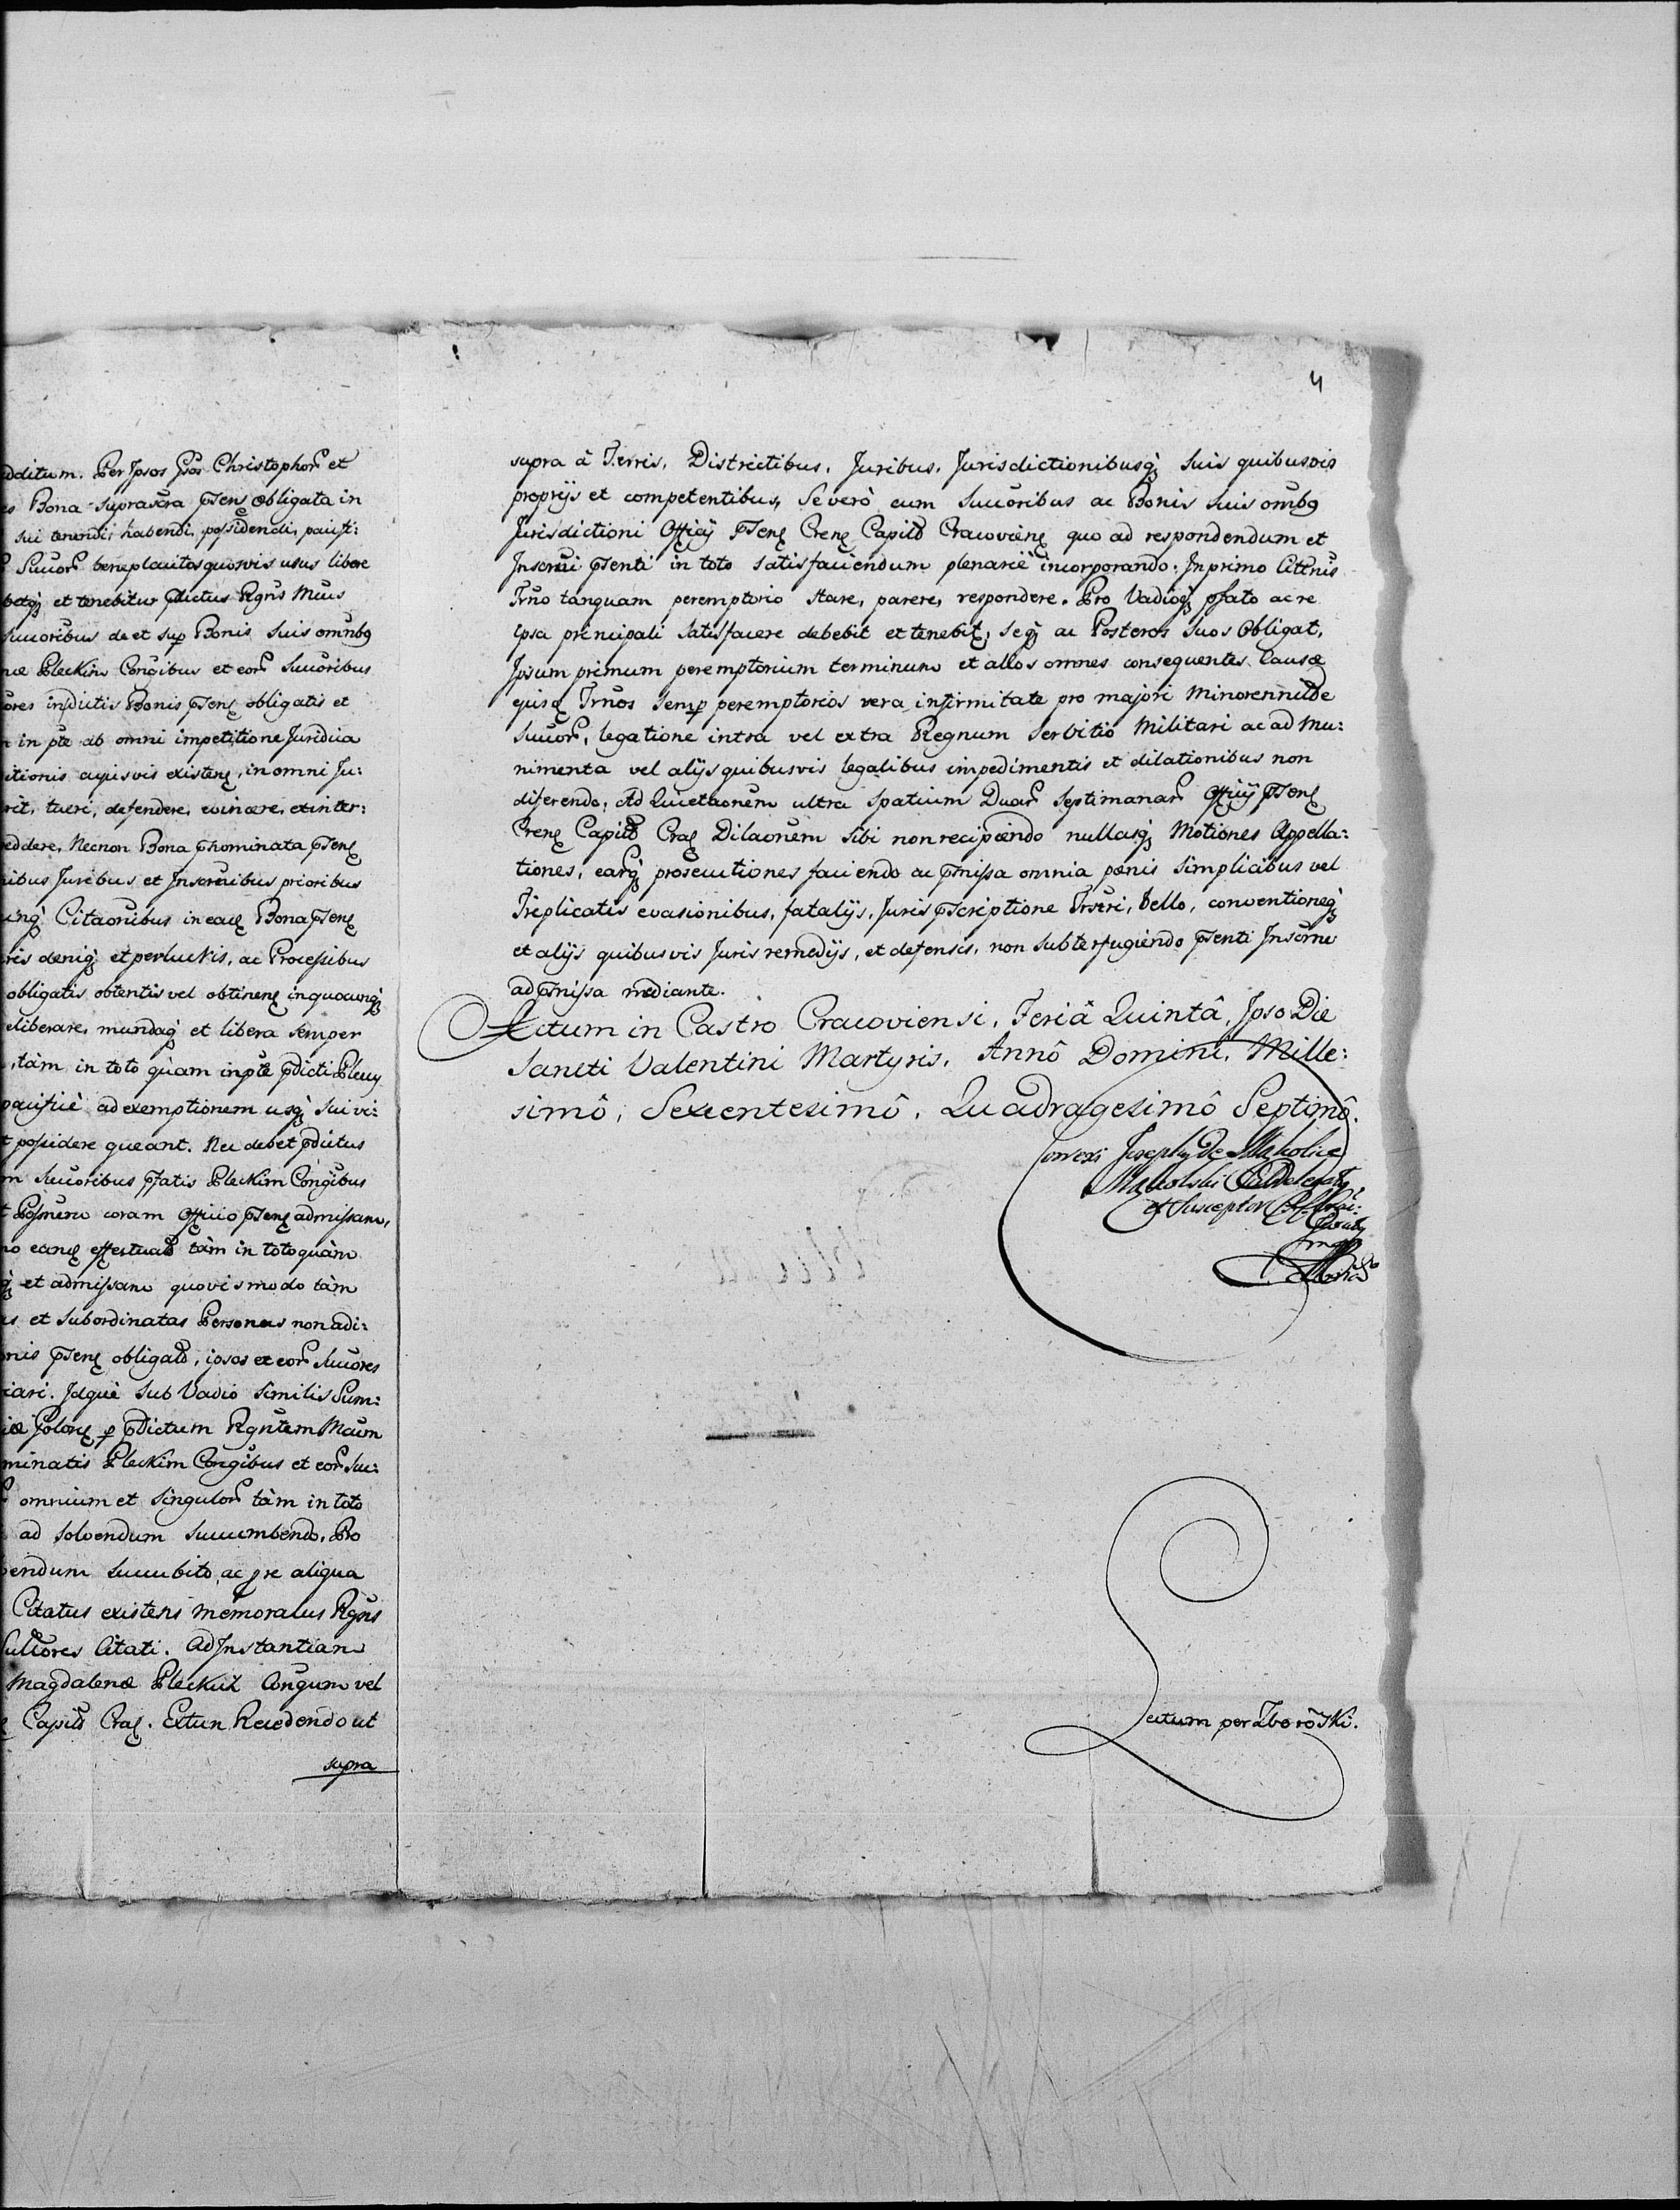 dditum. Per Ipsos Gsos Christophor et
es Bona suprascra psens obligata in
sui tenendi, habendi, possidendi, paci fi:
Succor beneplacitos quosvis usus libere
betq et tenebitur pdictus Rgns Meus
succoribus de et sup Bonis suis omnbq
næ Pleckim Congibus et eor Succoribus
cores in pdictis Bonis psens obligatis et
in pte ab omni impetitione Juridica
itionis cujusvis existens, in omni Ju:
rit, tueri, defendere, evincere, et inter:
eddere, Necnon Bona phominata psens
nibus Juribus et Inscrnibus prioribus
unq Citaonibus in eadem Bona psens
ris deniq et perlucris, ac Processibus
obligatis obtentis vel obtinens in quocunq
eliberare, mundaq et libera semper
, tàm in toto quàm in pte pdicti Plecy
pacificè ad exemptionem usq sui vi:
t possidere queant. Nec debet pdictus
m succoribus pfatis Pleckim Congibus
coram Officio psens admissam,
effectuad tàm in toto quàm
q et admissam quovis modo tàm
us et subordinatas Personas non adi:
onis psens obligad, ipsos et eor succores
iari. Idque sub Vadio similis Sum:
iæ Polons p pdictum Rgntem Maum
minatis Pleckim Congibus et eor suc:
omnium et singulor tàm in toto
ad solvendum succumbendo. Pro
endum succubito, ac pre aliqua
Citatus existens memoratus Rgns
sultores Citati. Ad Instantiam
Magdalenæ Pleckich Congum vel
Capitd Crac. Extun Recedendo ut
supra
4
supra à Terris, Districtibus, Juribus, Jurisdictionibusq suis quibusvis
proprijs et competentibus, Se verò cum succoribus ac Bonis suis omnbq
Jurisdictioni Officij psens Crens Capitd Cracoviens quo ad respondendum et
Inscrni psenti in toto satisfaciendum plenariè incorporando. In primo Citnis
Trno tanquam peremptorio stare, parere, respondere. Pro Vadioq pfato ac re
ipsa principali satisfacere debebit et tenebit, seq ac Posteros suos Obligat,
Ipsum primum peremptorium terminum et allos omnes consequentes. Causæ
Trnos semp peremptorios vera infirmitate pro majori Minorennitde
Succor, legatione intra vel extra Regnum Serbitio Militari ac ad Mu:
nimenta vel alijs quibusvis legalibus impedimentis et dilationibus non
diferendo. Ad Quietaonem ultra spatium Duar septimanar Officij psens
Crens Capitd Crac Dilaonem sibi non recipiendo nullasq Motiones Appella:
tiones, earq prosecutiones faciendo ac pmissa omnia pœnis simplicibus vel
Treplicatis evasionibus, fatalijs, Juris pscriptione Trsri, bello, conventioneq
et alijs quibusvis Juris remedijs, et defensis, non subterfugiendo psenti Inscrne
ad pmissa mediante.
Actum in Castro Cracoviensi, Feriâ Quintâ, Ipso Die
Sancti Valentini Martyris, Annô Domini, Mille:
simô, Sexentesimô, Quadragesimô Septimô.
Correxi Josephy de Makolice
Makolski
et Susceptor
mpp
Lectum per Zboroski.